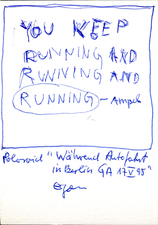 YOU KEEP
RUNNING AND
RUNNING AND
RUNNING - Ampel
Polaroid "Während Autofahrt
in Berlin GA 17 V 95"